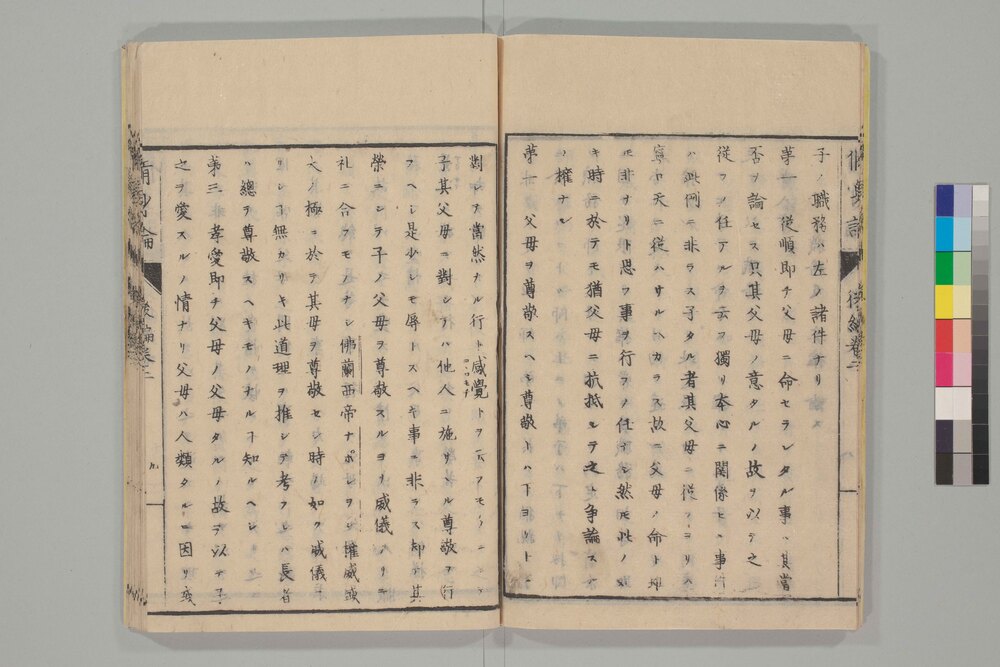 子ノ職務ハ左ノ諸件ナリ
第一 従順即チ父母ニ命セラレタル事ハ其當
否ヲ論セス只其父母ノ意タルノ故ヲ以テ之ニ
従フノ任アルヲ云フ獨リ本心ニ關係セル事件
ハ此例ニ非ラス子タル者其父母ニ従フヨリハ
寧ロ天ニ従ハサルヘカラス故ニ父母ノ命ト雖
モ非ナリト思フ事ヲ行フノ任ナシ然モ此ノ如
キ時ニ於テモ猶父母ニ抗抵シテ之ト争論スル
ノ權ナシ
第二 父母ヲ尊敬スヘシ尊敬トハ下ヨリ上ニ
對シテ當然ナル行ト感覺トヲ云フモノニシテ
コヽロモチ
子其父母ニ對シテハ他人ニ施サヽル尊敬ヲ行
フヘシ是少シモ辱トスヘキ事ニ非ラス却テ其
榮ニシテ子ノ父母ヲ尊敬スルヨリ威儀ノリテ
礼ニ合フモノナシ佛蘭西帝ナポレヲン權威
大極ニ於テ其母ヲ尊敬セシ時ノ如ク威儀
シテ無カリキ此道理ヲ推シテ考フレハ長者
ハ總テ尊敬スヘキモノナルヿ知ルヘシ
第三 孝愛即チ父母ノ父母タルノ故ヲ以テ子
之ヲ愛スルノ情ナリ父母ハ人類タルニ因リ
脩身論 後編卷二
九